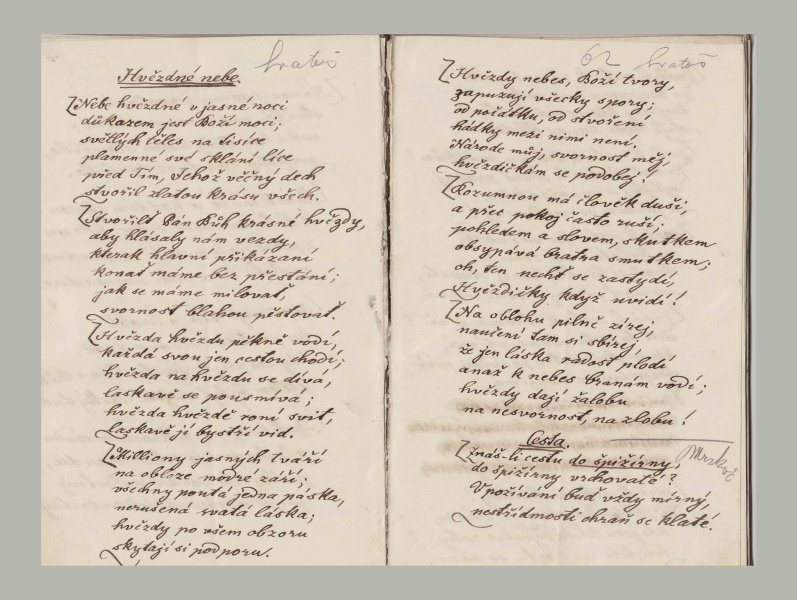 Hvězdné nebe.
Nebe hvězdné v jasné noci
důkazem jest Boží moci;
světlých těles na tisíce
plamenné své sklání líce
před Tím, Jehož věčný dech
stvořil zlatou krásu všech.
Stvořilť Pán Bůh krásné hvězdy,
aby hlásaly nám vezdy,
kterak hlavní přikázaní
konať máme bez přestání;
jak se máme milovať,
svornosť blahou pěstovať.
Hvězda hvězdu pěkně vodí,
každá svou jen cestou chodí;
hvězda na hvězdu se dívá,
laskavě se pousmívá;
hvězda hvězdě roní svit,
laskavě jí bystří vid.
Milliony jasných tváří
na obloze modré září;
všechny poutá jedna páska,
nerušená svatá láska;
hvězdy po všem obzoru
skytají si podporu.
62
Hvězdy nebes, Boží tvory,
zapuzují všecky spory;
od počátku, od stvoření
hádky mezi nimi není.
Národe můj, svornosť měj,
hvězdičkám se podobej!
Rozumnou má člověk duši,
a přec pokoj často ruší;
pohledem a slovem, skutkem
obsypává bratra smutkem;
oh, ten nechť se zastydí,
Hvězdičky když uvidí!
Na oblohu pilně zírej,
naučení tam si sbírej,
že jen láska radost plodí
anaž k nebes branám vodí;
hvězdy dají žalobu
na nesvornosť, na zlobu!
Cesta.
Znáš-li cestu do špižírny,
do špižírny vrchovaté?
V požívání buď vždy mírný,
nestřídmosti chraň se klaté.